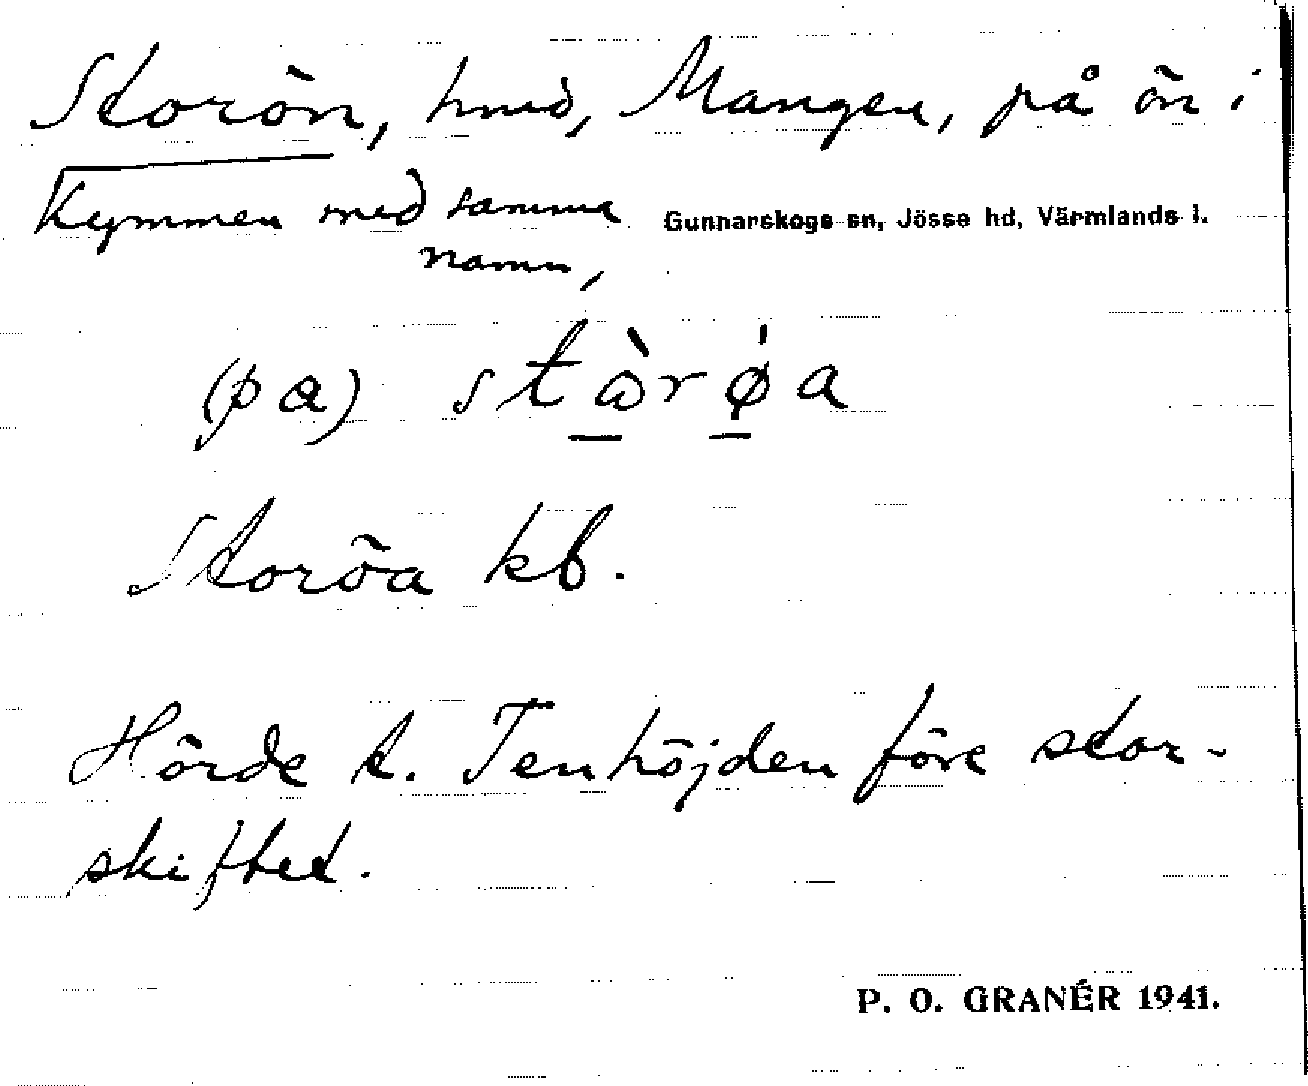 Storön, hmd, Mangen, på ön i
Kymmen med samma
namn,
Gunnarskogs sn, Jösse hd, Värmlands l.
(pa) stɷ̀rø̍a
Storöa kb.
Hörde t. Tenhöjden före stor-
skiftet.
P. O. GRANÉR 1941.